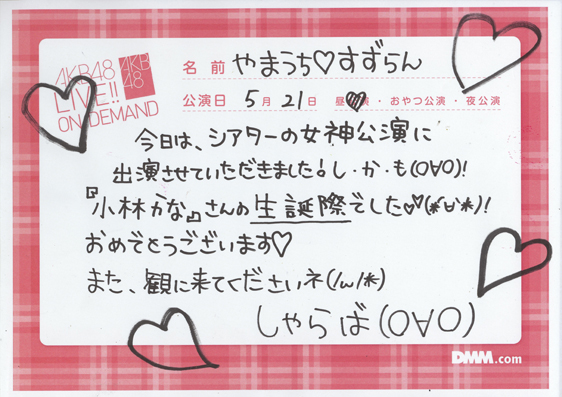 AKB48
LIVE!!
ON DEMAND
AKB
48
名前 やまうち♡すずらん
公演日 5月21日 昼♥演・おやつ公演・夜公演
今日は、シアターの女神公演に
出演させていただきました!し・か・も(O∀O)!
『小林かな』さんの生誕際でした♡♡(*´∪`*)!
おめでとうございます♡
また、観に来てくださいネ(/∧/*)
しゃらば(O∀O)
DMM.com